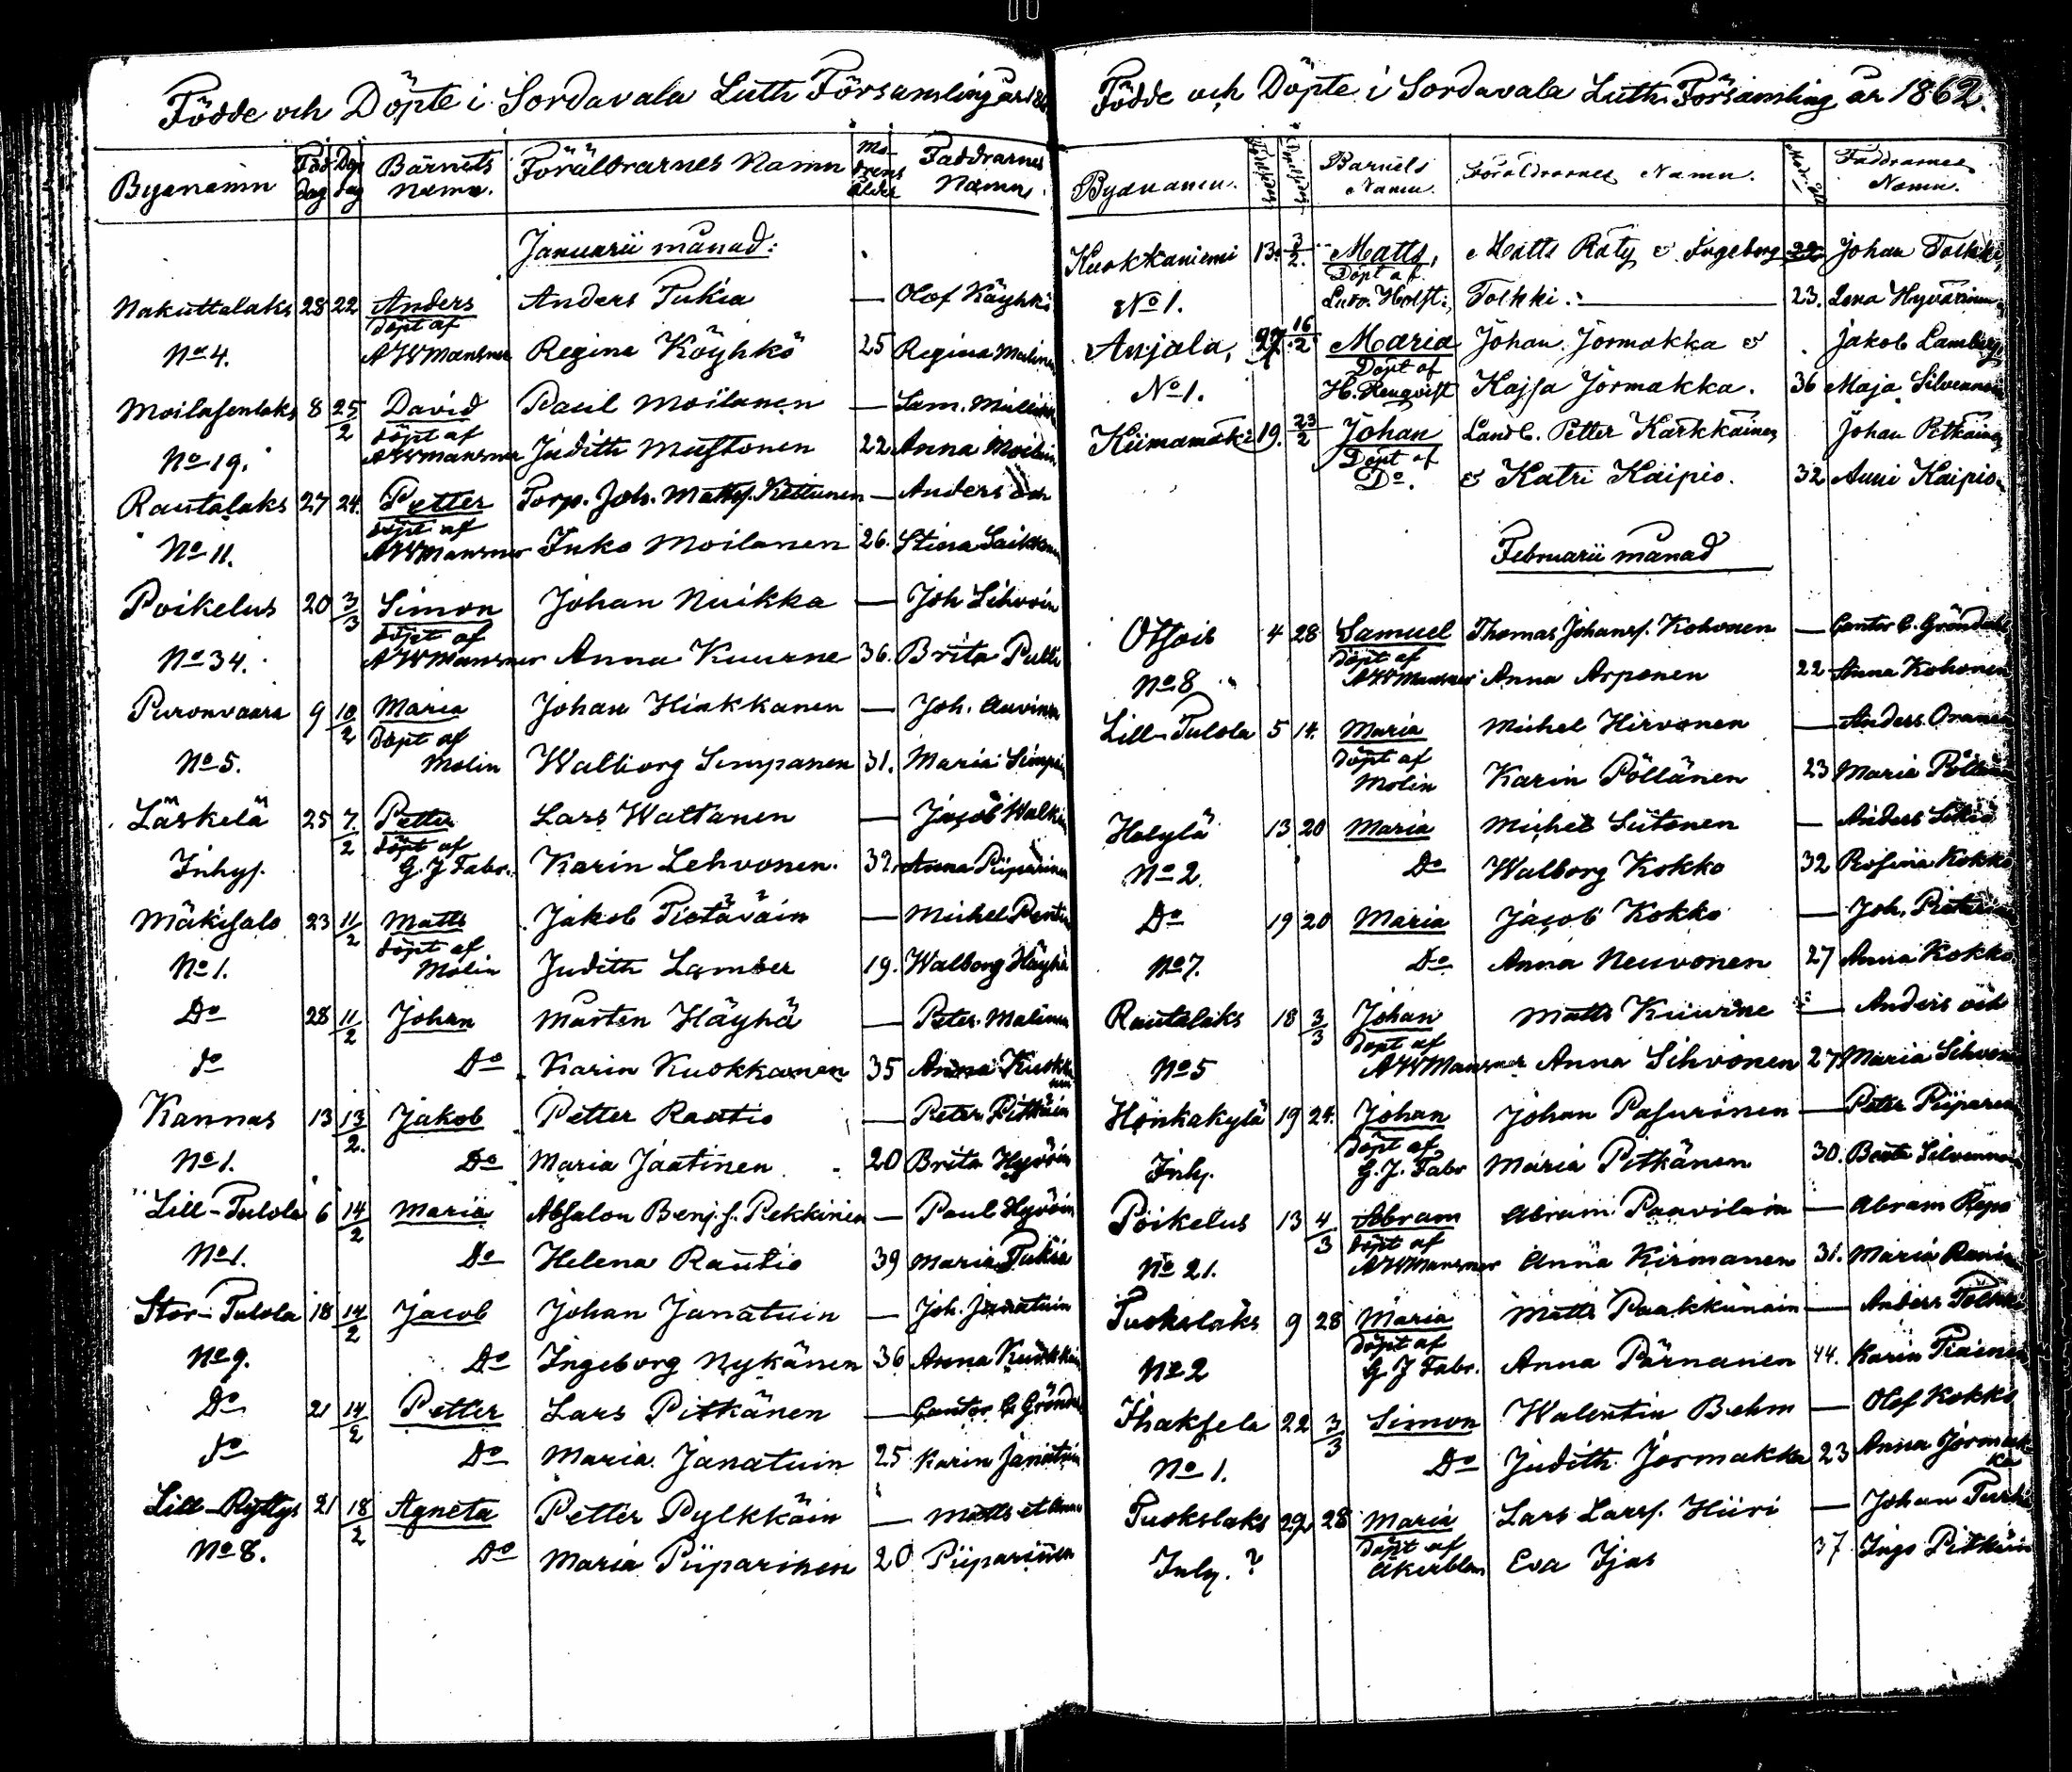 Födde och Döpte i Sordavala Luth Församling år 186
Byanamn Föd dag Döp dag Barnets Namn. Föräldrarnes Namn Modrens ålder Faddrarnes Namn.
Januarii månad:
Nakuttalaks 28 22 Anders Anders Tukia — Olof Käyhkö
Döpt af
No 4. AWMansner Regina Köyhkö 25 Regina Malinen
Moilasenlaks 8 25/2 David Paul Moilanen — Sam.
Döpt af
No 19. AWMansner Judith Mustonen 22 Anna Moilain
Rautalaks 27 24. Petter Torp. Joh. Matts. Kettunen — Anders och
Döpt af
No 11. AWMansner Inko Moilanen 26. Stina Saikkonen
Poikelus 20 3/3 Simon Johan Nuikka — Joh Sihvoin
Döpt af
No 34. AWMansner Anna Kuurne 36. Brita Pulli
Puronvaara 9 10/2 Maria Johan Hiukkanen — Joh. Auvinen
Döpt af
No 5. Molin Walborg Simpanen 31. Maria Simpain
Läskelä 25 7/2 Petter Lars Wattanen — Jacob
Döpt af
Inhys. G. J Fabr. Karin Lehvonen. 32 Anna Piiparinen
Mäkisalo 23 11/2 Matts Jakob Tiotäväin — Michel
Döpt af
No 1. Molin Judith Lamber 19. Walborg Häyhä
Do 28 11/2 Johan Mårten Häyhä — Peter Malinen
do Do Karin Kuokkanen 35 Anna Kuokkanen
Kannas 13 13/2. Jakob Petter Rautio — Peter Pitkäin
No 1. Do Maria Jaatinen 20 Brita Hyvöin
Lill-Tulola 6 14/2 Maria Absalon Benj. s. Pekkinen — Paul Hyvöin
No 1. Do Helena Rautio 39 Maria Tukia
Stor-Tulola 18 14/2 Jacob Johan Janatuin — Joh. Janatuin
No 9. Do Ingeborg Nykänen 36 Anna
Do 21 14/2 Petter Lars Pitkänen — Cantor C Gröndahl
do Do Maria Janatuin 25 Karin Janatuin
Lill-Ryttys 21 18/2 Agneta Petter Pylkkäin — Matts et Anna
No 8. Do Maria Piiparinen 20 Piiparinen
Födde och Döpte i Sordavala Luth. Församling år 1862.
Byanamn. Barnets Namn. Föräldrarnes Namn. Faddrarnes Namn.
Kuokkaniemi 13. 3/2. Matts, Matts Räty & Ingeborg 22 Johan Tolkki,
Döpt af
No 1. Ludv. Holst. Tolkki. — 23. Lena Hyvärinen
Anjala, 27. 16/2 Maria Johan Jormakka & Jakob Lamberg,
Döpt af
No 1. H. Renqvist Kajsa Jormakka. 36 Maja Silvennoin
Kiimamäki 19. 23/2 Johan Landb. Petter Karkkainen Johan Pitkäinen
Döpt af
Do. & Katri Kaipio. 32 Anni Kaipio.
Februarii månad
Otsois 4 28 Samuel Thomas Johanss. Kohonen — Cantor C. Gröndahl
Döpt af
No 8 AWMansner Anna Arponen 22 Anna Kohonen
Lill-Tulola 5 14. Maria Michel Hirvonen — Anders
Döpt af
Molin Karin Pöllänen 23 Maria Pöllänen
Helylä 13 20 Maria Michel Siitonen — Anders
No 2. Do Walborg Kokko 32 Rosina Kokko
Do 19 20 Maria Jacob Kokko — Joh.
No 7. Do Anna Neuvonen 27 Anna Kokko
Rautalaks 18 3/3 Johan Matts Kuurne — Anders och
Döpt af
No 5 AWMansner Anna Sihvonen 27 Maria Sihvonen
Honkakylä 19 24. Johan Johan Pasurinen — Peter Piiparen
Döpt af
Inhy. G. J. Fabr Maria Pitkänen 30. Beata Silvennoin
Poikelus 13 4/3 Abram Abram Paavilain — Abram Repo
Döpt af
No 21. AWMansner Anna Kirmanen 31. Maria
Tuokslaks 9 28 Maria Matts Paakkunain — Anders Tolkki
Döpt af
No 2 G J Fabr. Anna Pärnanen 44. Karin Piainen
Ihaksela 22 3/3 Simon Walentin Behm — Olof Kokko
No 1. Do Judith Jormakka 23 Anna Jormakka
Tuokslaks 22 28 Maria Lars Larss. Hiiri — Johan
Döpt af
Inhy. ? Åkerblom Eva Ijas 37. Ingo Pitkäin